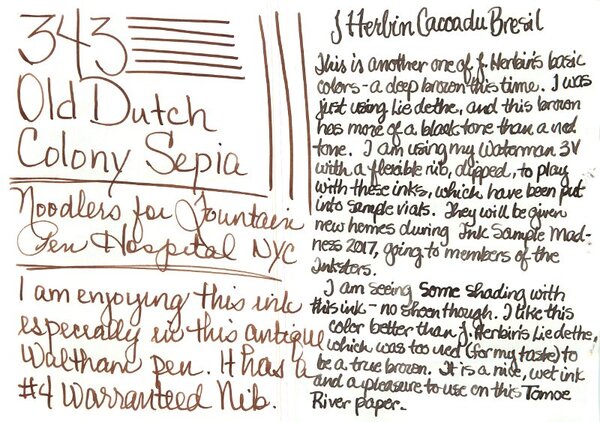 343
Old Dutch
Colony Sepia
Noodlers for Fountain
Pen Hospital NYC
I am enjoying this ink
especially in this antique
Waltham pen. It has a
#4 Warranteed Nib.
J Herbin Cacao du Bresil
This is another one of J. Herbin's basic
colors - a deep brown this time. I was
just using Lie de the, and this brown
has more of a black tone than a red
tone. I am using my Waterman 3V
with a flexible nib, dipped, to play
with these inks, which have been put
into sample vials. They will be given
new homes during Ink Sample Mad-
ness 2017, going to members of the
Inksters.
I am seeing some shading with
this ink - no sheen though. I like this
color better than J. Herbin's Lie de the,
which was too red (for my taste) to
be a true brown. It is a nice, wet ink
and a pleasure to use on this Tomoe
River paper.